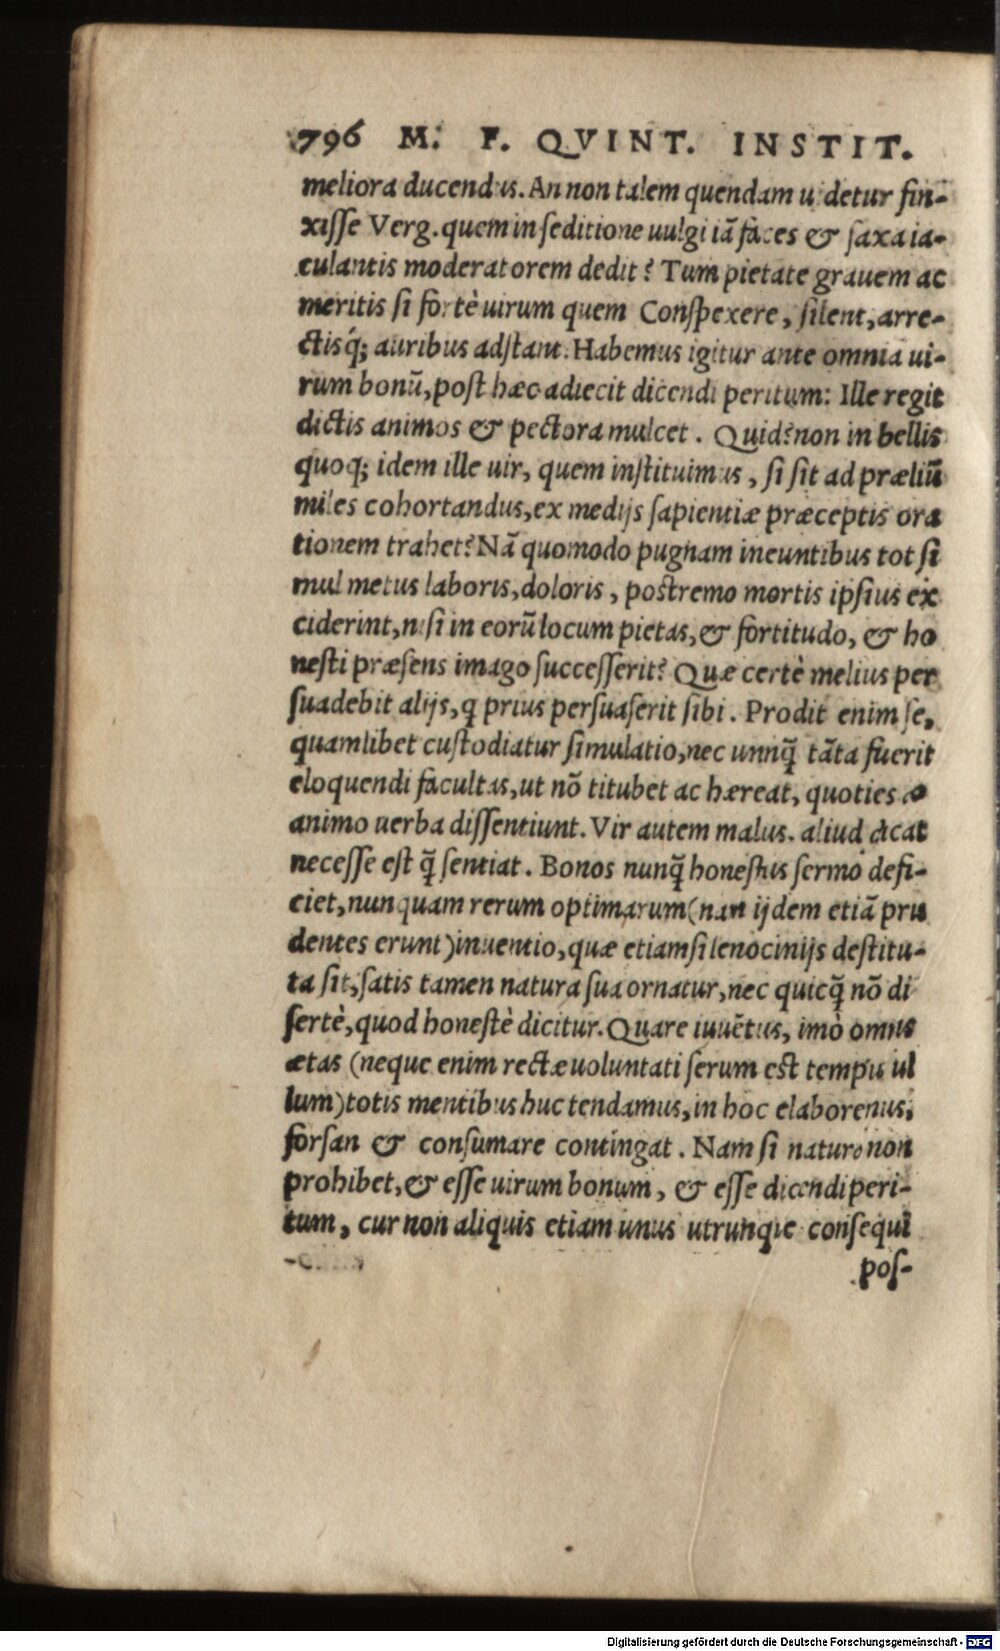 796 M. F. QVINT. INSTIT.
meliora ducendus. An non talem quendam uidetur fin-
xisse Verg. quem in seditione uulgi iā faces & saxa ia-
culantis moderatorem dedit? Tum pietate grauem ac
meritis si fortè uirum quem Conspexere, silent, arre-
ctisq́; auribus adstant. Habemus igitur ante omnia ui-
rum bonū, post hæc adiecit dicendi peritum: Ille regit
dictis animos & pectora mulcet. Quid? non in bellis
quoq; idem ille uir, quem instituimus, si sit ad præliū
miles cohortandus, ex medijs sapientiæ præceptis ora
tionem trahet? Nā quomodo pugnam ineuntibus tot si
mul metus laboris, doloris, postremo mortis ipsius ex
ciderint, nisi in eorū locum pietas, & fortitudo, & ho
nesti præsens imago successerit? Quæ certè melius per
suadebit alijs, q prius persuaserit sibi. Prodit enim se,
quamlibet custodiatur simulatio, nec unnq̄ tāta fuerit
eloquendi facultas, ut nō titubet ac hæreat, quoties ab
animo uerba dissentiunt. Vir autem malus. aliud dicat
necesse est q̄ sentiat. Bonos nunq̄ honestus sermo defi-
ciet, nunquam rerum optimarum (nam ijdem etiā pru
dentes erunt) inuentio, quæ etiamsi lenocinijs destitu-
ta sit, satis tamen natura sua ornatur, nec quicq̄ nō di
sertè, quod honestè dicitur. Quare iuuētus, imò omnis
ætas (neque enim rectæ uoluntati serum est tempus ul
lum) totis mentibus huc tendamus, in hoc elaboremus,
forsan & consumare contingat. Nam si natura non
prohibet, & esse uirum bonum, & esse dicendi peri-
tum, cur non aliquis etiam unus utrunque consequi
pos-
Digitalisierung gefördert durch die Deutsche Forschungsgemeinschaft - DFG